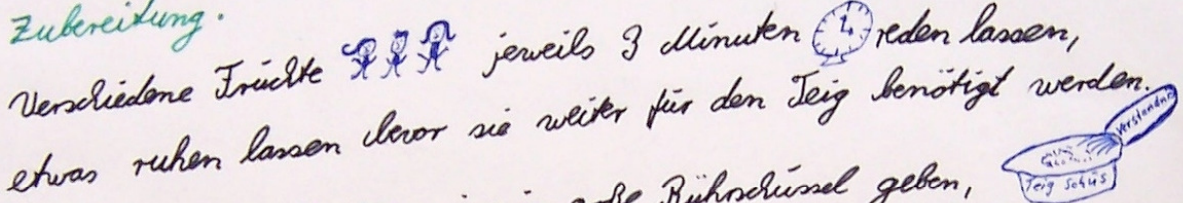 Zubereitung.
Verschiedene Früchte jeweils 3 Minuten reden lassen,
etwas ruhen lassen bevor sie weiter für den Teig benötigt werden.
Rührschüssel geben,
Teig Schüs